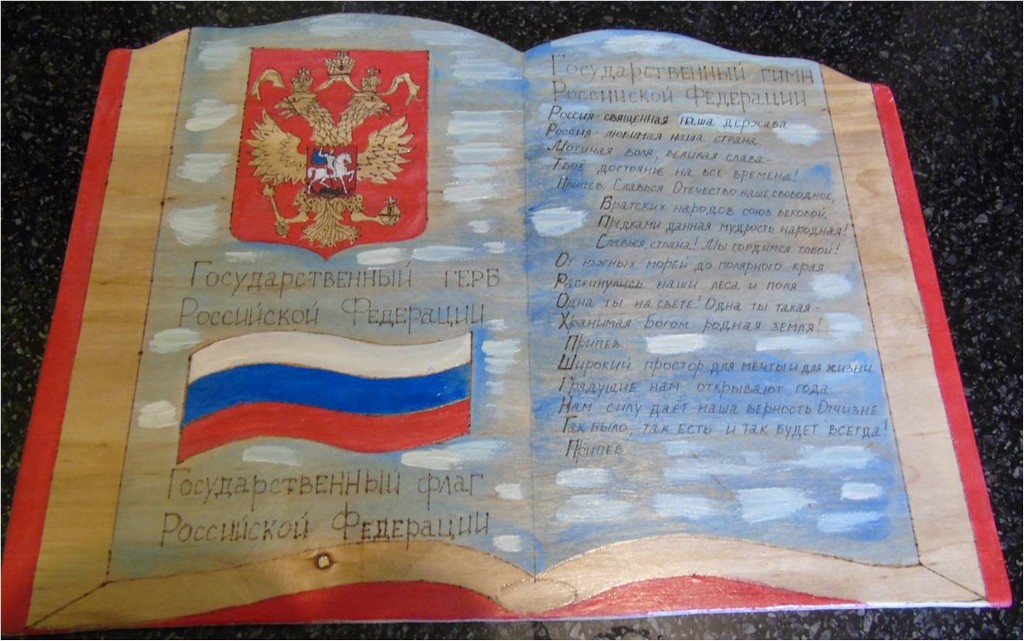 Государственный герб
Российской Федерации
Государственный флаг
Российской Федерации
Государственный гимн
Российской Федерации
Россия - священная наша держава
Россия - любимая наша страна.
Могучая воля, великая слава -
Твое достояние на все времена!
Припев: Славься Отечество наше свободное,
Братских народов союз вековой,
Предками данная мудрость народная!
Славься, страна! Мы гордимся тобой!
От южных морей до полярного края
Раскинулись наши леса и поля.
Одна ты на свете! Одна ты такая -
Хранимая Богом родная земля!
Припев.
Широкий простор для мечты и для жизни
Грядущие нам открывают года.
Нам силу дает наша верность Отчизне.
Так было, так есть и так будет всегда!
Припев